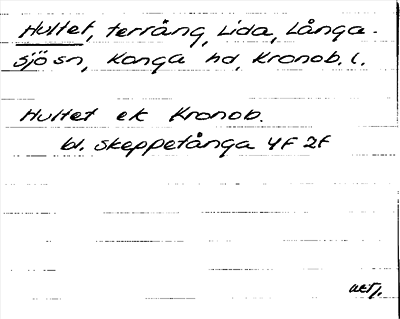 Hultet, terräng, Lida, Långa-
sjö sn, Konga hd, Kronob. l.
Hultet ek Kronob.
bl. Skeppetånga 4F 2f